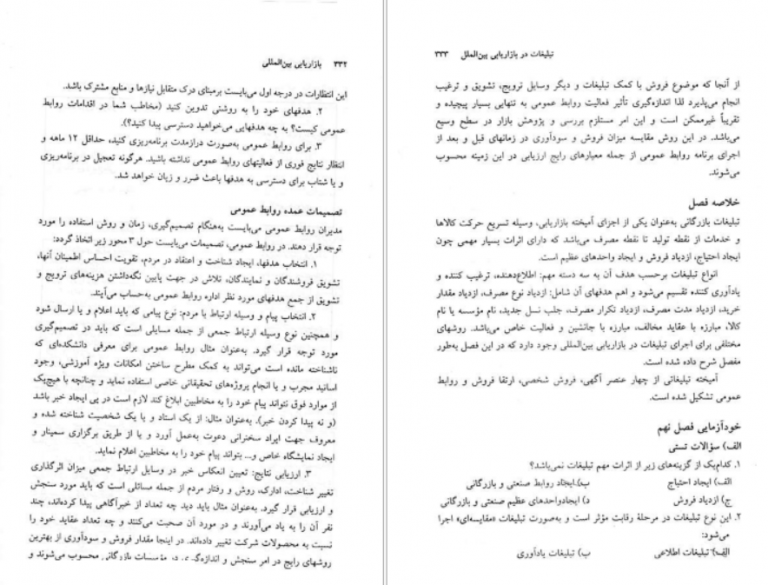 ۳۳۲ بازاریابی بین‌المللی
این انتظارات در درجه اول می‌بایست برمبنای درک متقابل نیازها و منابع مشترک باشد.
۲. هدفهای خود را به روشنی تدوین کنید (مخاطب شما در اقدامات روابط
عمومی کیست؟ به چه هدفهایی می‌خواهید دسترسی پیدا کنید؟).
۳. برای روابط عمومی به‌صورت درازمدت برنامه‌ریزی کنید، حداقل ۱۲ ماهه و
انتظار نتایج فوری از فعالیتهای روابط عمومی نداشته باشید. هرگونه تعجیل در برنامه‌ریزی
و یا شتاب برای دسترسی به هدفها باعث ضرر و زیان خواهد شد.
تصمیمات عمده روابط عمومی
مدیران روابط عمومی می‌بایست به‌هنگام تصمیم‌گیری، زمان و روش استفاده را مورد
توجه قرار دهند. در روابط عمومی، تصمیمات می‌بایست حول ۳ محور زیر اتخاذ گردد:
۱. انتخاب هدفها، ایجاد شناخت و اعتقاد در مردم، تقویت احساس اطمینان آنها،
تشویق فروشندگان و نمایندگان، تلاش در جهت پایین نگه‌داشتن هزینه‌های ترویج و
تشویق از جمع هدفهای مورد نظر اداره روابط عمومی به‌حساب می‌آیند.
۲. انتخاب پیام و وسیله ارتباط با مردم: نوع پیامی که باید اعلام و یا ارسال شود
و همچنین نوع وسیله ارتباط جمعی از جمله مسایلی است که باید در تصمیم‌گیری
مورد توجه قرار گیرد. به‌عنوان مثال روابط عمومی برای معرفی دانشکده‌ای که
ناشناخته مانده است می‌تواند به کمک مطرح ساختن امکانات ویژه آموزشی، وجود
اساتید مجرب و یا انجام پروژه‌های تحقیقاتی خاصی استفاده نماید و چنانچه با هیچ‌یک
از موارد فوق نتواند پیام خود را به مخاطبین ابلاغ کند لازم است در پی ایجاد خبر باشد
(و نه پیدا کردن خبر). به‌عنوان مثال: از یک استاد و یا یک شخصیت شناخته شده و
معروف جهت ایراد سخنرانی دعوت به‌عمل آورد و یا از طریق برگزاری سمینار و
ایجاد نمایشگاه خاص و... بتواند پیام خود را به مخاطبین اعلام نماید.
۳. ارزیابی نتایج: تعیین انعکاس خبر در وسایل ارتباط جمعی میزان اثرگذاری
تغییر شناخت، ادارک، روش و رفتار مردم از جمله مسائلی است که باید مورد سنجش
و ارزیابی قرار گیرد. به‌عنوان مثال باید دید چه تعداد از خبرآگاهی پیدا کرده‌اند، چند
نفر آن را به یاد می‌آورند و در مورد آن صحبت می‌کنند و چه تعداد عقاید خود را
نسبت به محصولات شرکت تغییر داده‌اند. در اینجا مقدار فروش و سودآوری از بهترین
روشهای رایج در امر سنجش و اندازه‌گیری در مؤسسات بازرگانی محسوب می‌شوند و
تبلیغات در بازاریابی بین‌الملل ۳۳۳
از آنجا که موضوع فروش با کمک تبلیغات و دیگر وسایل ترویج، تشویق و ترغیب
انجام می‌پذیرد لذا اندازه‌گیری تأثیر فعالیت روابط عمومی به تنهایی بسیار پیچیده و
تقریباً غیرممکن است و این امر مستلزم بررسی و پژوهش بازار در سطح وسیع
می‌باشد. در این روش مقایسه میزان فروش و سودآوری در زمانهای قبل و بعد از
اجرای برنامه روابط عمومی از جمله معیارهای رایج ارزیابی در این زمینه محسوب
می‌شوند.
خلاصه فصل
تبلیغات بازرگانی به‌عنوان یکی از اجزای آمیخته بازاریابی، وسیله تسریع حرکت کالاها
و خدمات از نقطه تولید تا نقطه مصرف می‌باشد که دارای اثرات بسیار مهمی چون
ایجاد احتیاج، ازدیاد فروش و ایجاد واحدهای عظیم است.
انواع تبلیغات برحسب هدف آن به سه دسته مهم: اطلاع‌دهنده، ترغیب کننده و
یادآوری کننده تقسیم می‌شود و اهم هدفهای آن شامل: ازدیاد نوع مصرف، ازدیاد مقدار
خرید، ازدیاد مدت مصرف، ازدیاد تکرار مصرف، جلب نسل جدید، نام مؤسسه یا نام
کالا، مبارزه با عقاید مخالف، مبارزه با جانشین و فعالیت خاص می‌باشد. روشهای
مختلفی برای اجرای تبلیغات در بازاریابی بین‌المللی وجود دارد که در این فصل به‌طور
مفصل شرح داده شده است.
آمیخته تبلیغاتی از چهار عنصر آگهی، فروش شخصی، ارتقا فروش و روابط
عمومی تشکیل شده است.
خودآزمایی فصل نهم
الف) سؤالات تستی
۱. کدام‌یک از گزینه‌های زیر از اثرات مهم تبلیغات نمی‌باشد؟
الف) ایجاد احتیاج ب) ایجاد روابط صنعتی و بازرگانی
ج) ازدیاد فروش د) ایجادواحدهای عظیم صنعتی و بازرگانی
۲. این نوع تبلیغات در مرحلهٔ رقابت مؤثر است و به‌صورت تبلیغات «مقایسه‌ای» اجرا
می‌شود:
الف) تبلیغات اطلاعی ب) تبلیغات یادآوری